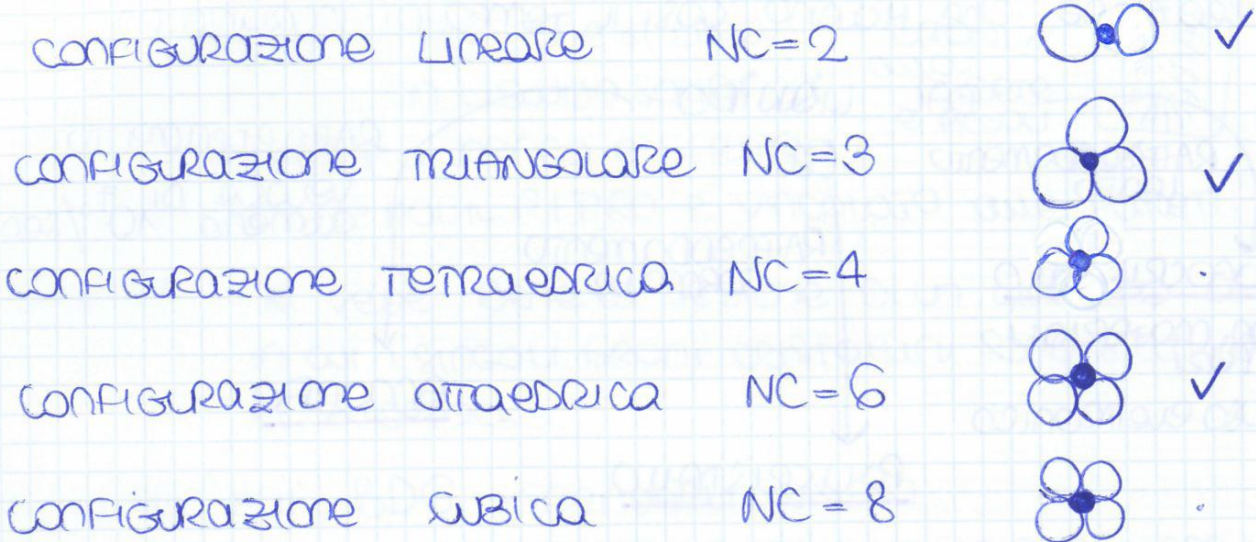 CONFIGURAZIONE LINEARE NC=2 ✓
CONFIGURAZIONE TRIANGOLARE NC=3 ✓
CONFIGURAZIONE TETRAEDRICA NC=4
CONFIGURAZIONE OTTAEDRICA NC=6 ✓
CONFIGURAZIONE CUBICA NC=8